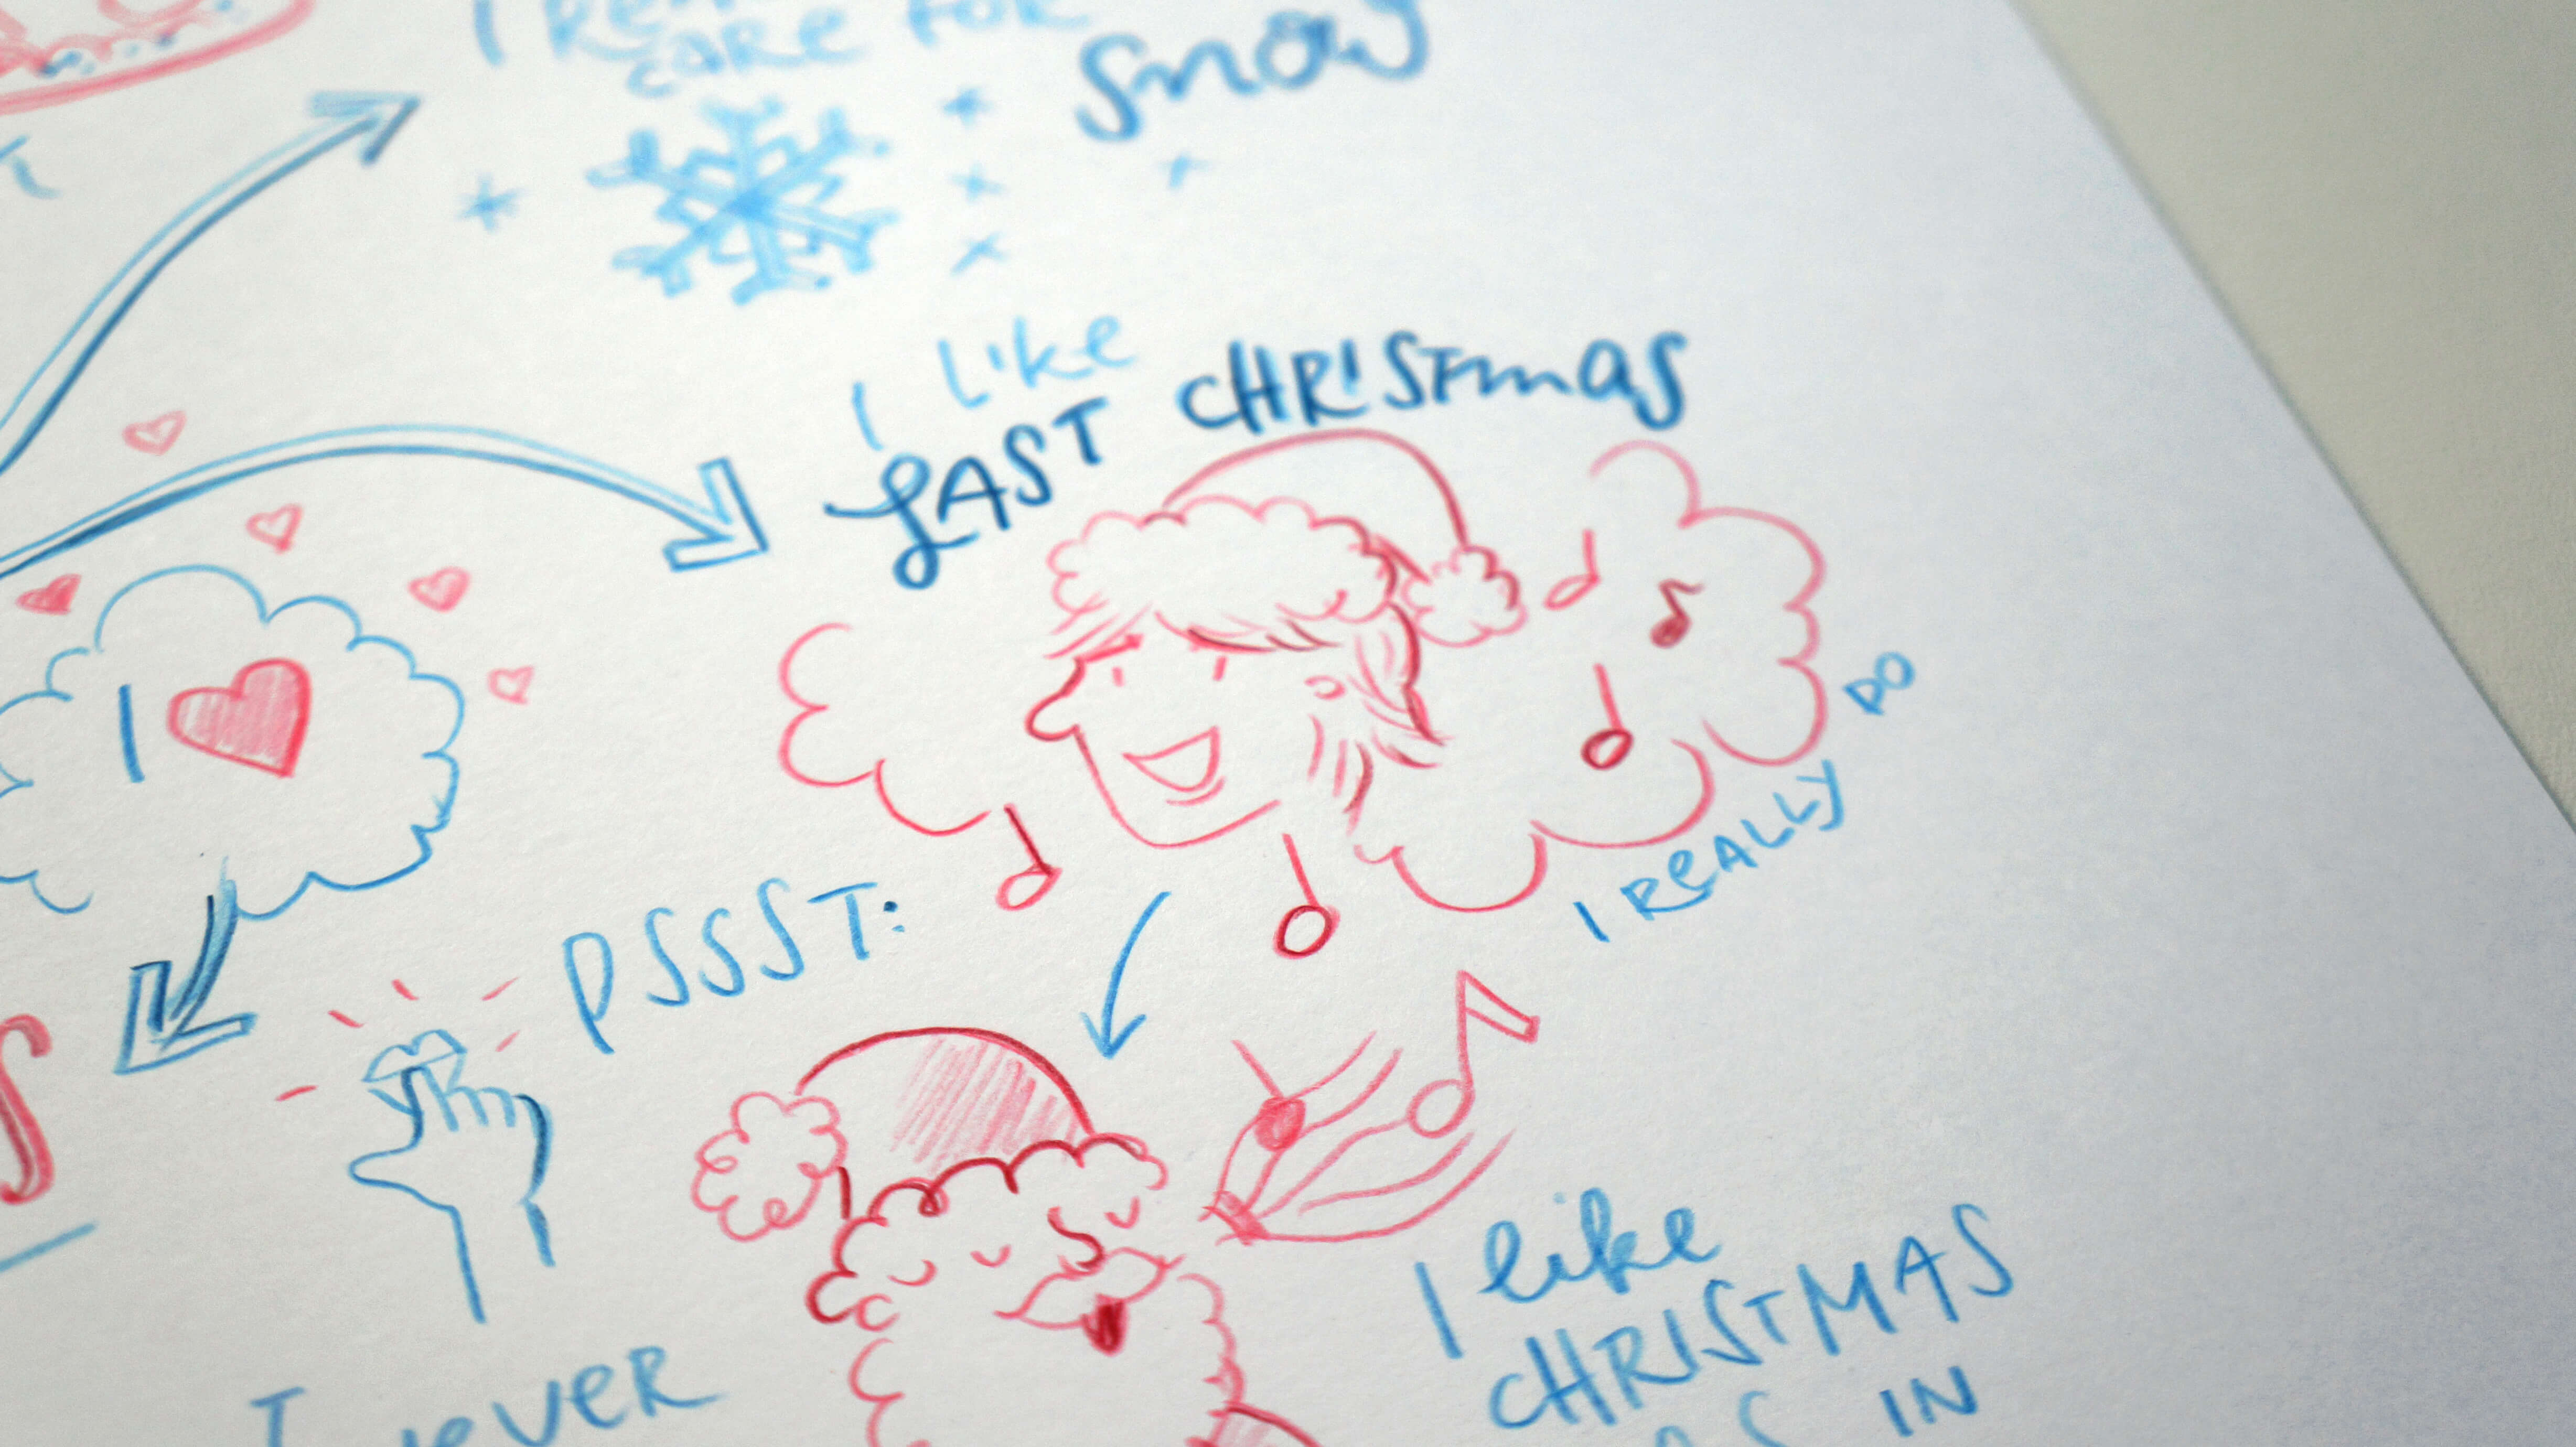 I
care for
snow
I like
LAST CHRISTmas
I
I REALLY DO
PSSST:
I like
CHRISTMAS
IN